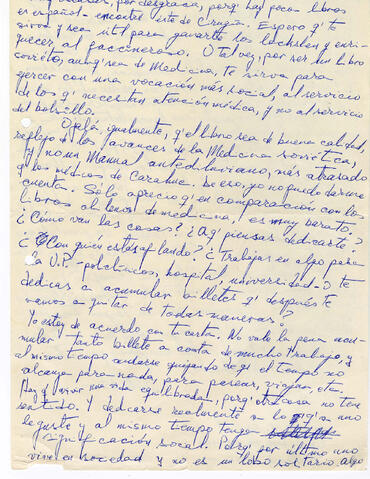 por desgracia, porq' hay pocos libros
en español encontré éste de Cirugía. Espero q' te
sirva y sea útil para ganarte los luchsten y enri-
quecer al faccineroso. O tal vez, por ser un libro
soviético, aunq' sea de Medicina, te sirva para
ejercer con una vocación más social, al servicio
de los q' necesitan atención médica, y no al servicio
del bolsillo.
Ojalá, igualmente, q' el libro sea de buena calidad,
reflejo de los avances de la Medicina soviética,
y no un Manual antediluviano, más atrasado
q' los médicos de Carahue. De eso, yo no puedo darme
cuenta. Sólo aprecio q' en comparación con los
libros chilenos de medicina, es muy barato.
¿Cómo van las cosas? ¿A q' piensas dedicarte?
¿Con quién estás aflando? ¿Trabajas en algo para
la U.P. -policlínicos, hospital, universidad- o te
dedicas a acumular billetes q' después te
vamos a quitar de todas maneras?
Yo estoy de acuerdo con tu carta. No vale la pena acu-
mular tanto billete a costa de mucho trabajo, y
al mismo tiempo andarse quejando de q' el tiempo no
alcanza para nada, para pasear, viajar, etc.
Hay q' vivir una vida equilibrada, porq' otra cosa no tiene
sentido. Y dedicarse realmente a lo q' a uno
le guste y al mismo tiempo tenga
significación social. Porq' por último uno
vive en sociedad y no es un lobo solitario, algo